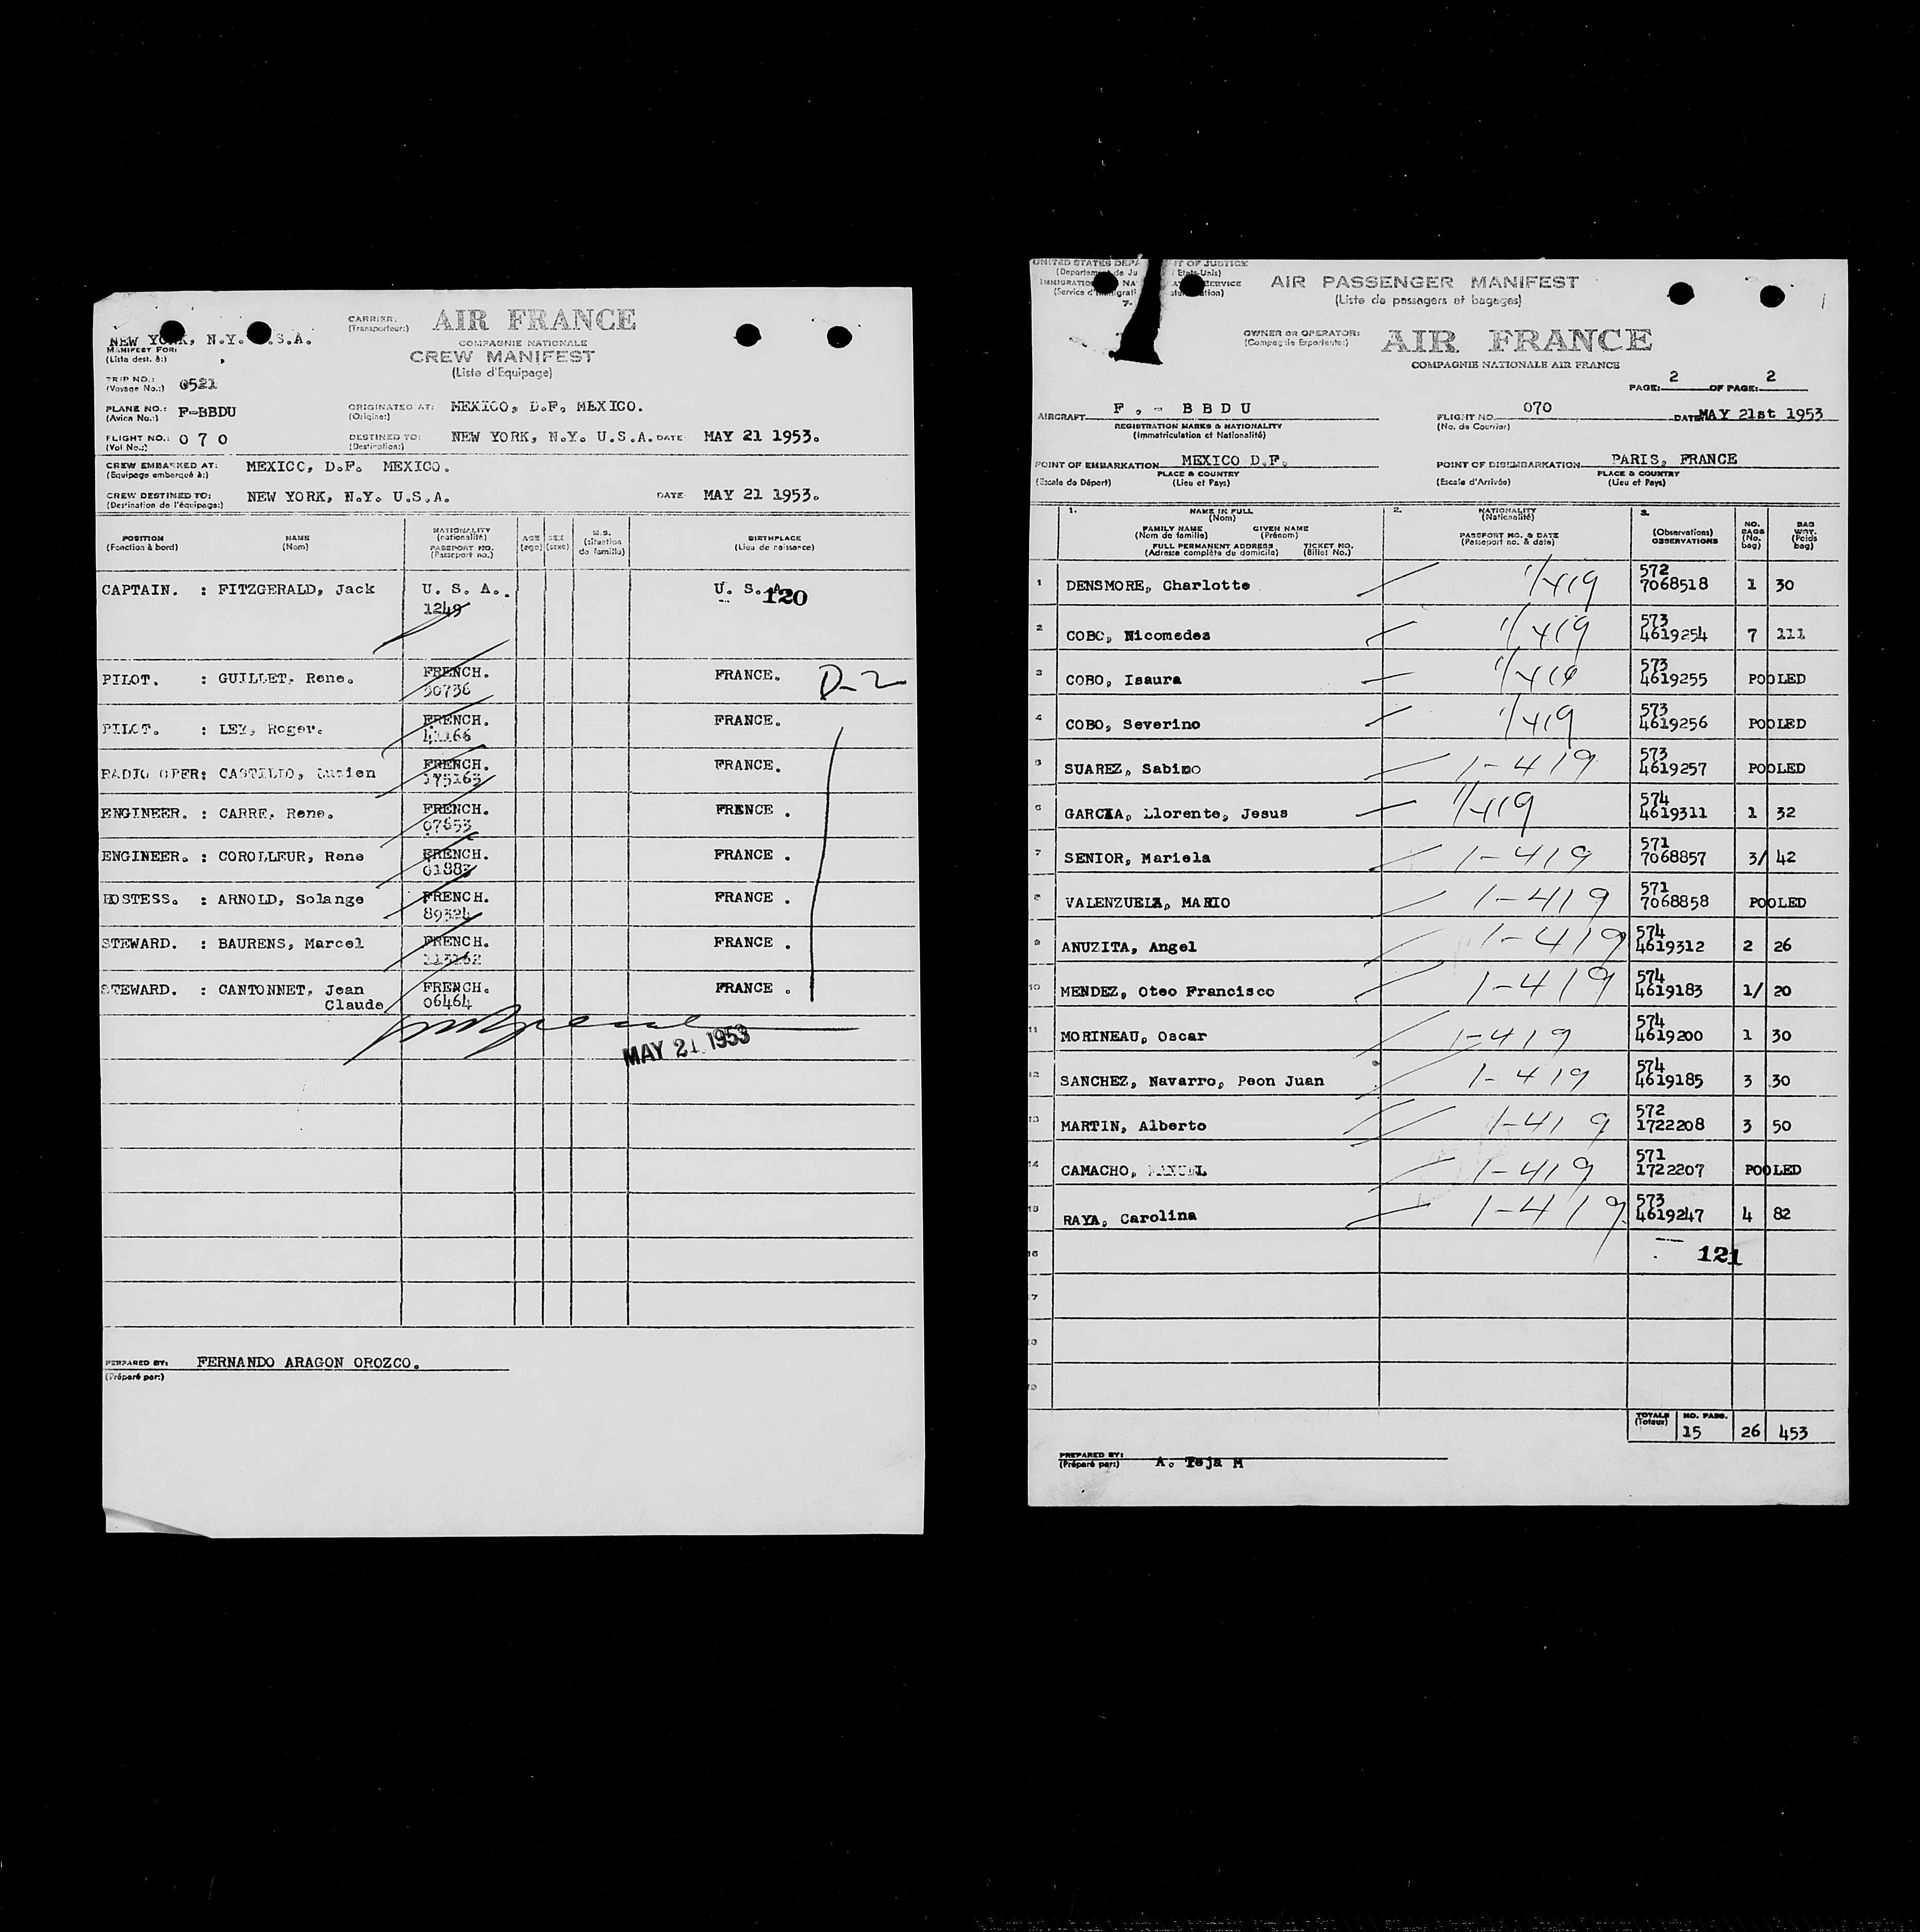 NEW YORK, N.Y. U.S.A.
MANIFEST FOR:
(Liste dest. à:)
CARRIER:
(Transporteur:)
AIR FRANCE
COMPAGNIE NATIONALE
CREW MANIFEST
(Liste d'Equipage)
TRIP NO.: 0521
(Voyage No.:)
PLANE NO.: F-BBDU
(Avion No.:)
ORIGINATED AT: MEXICO, D.F. MEXICO.
(Origine:)
FLIGHT NO.: 0 7 0
(Vol No.:)
DESTINED TO: NEW YORK, N.Y. U.S.A. DATE: MAY 21 1953.
(Destination:)
CREW EMBARKED AT: MEXICO, D.F. MEXICO.
(Equipage embarqué à:)
CREW DESTINED TO: NEW YORK, N.Y. U.S.A. DATE MAY 21 1953.
(Destination de l'équipage:)
POSITION
(Fonction à bord)
NAME
(Nom)
NATIONALITY
(nationalité)
PASSPORT NO.
(Passeport no.)
AGE
(age)
SEX
(sexe)
M.S.
(situation
de famille)
BIRTHPLACE
(Lieu de naissance)
CAPTAIN. : FITZGERALD, Jack U. S. A. U. S. A. 120
1249
PILOT. : GUILLET, Rene. FRENCH. FRANCE. D-2
30736
PILOT. : LEY, Roger. FRENCH. FRANCE.
41166
RADIO OPER: CASTILLO, Lucien FRENCH. FRANCE.
175163
ENGINEER. : CARRE, Rene. FRENCH. FRANCE .
07653
ENGINEER. : COROLLEUR, Rene FRENCH. FRANCE .
01883
HOSTESS. : ARNOLD, Solange FRENCH. FRANCE .
89324
STEWARD. : BAURENS, Marcel FRENCH. FRANCE .
113162
STEWARD. : CANTONNET, Jean FRENCH. FRANCE .
Claude 06464
MAY 21 1953
PREPARED BY: FERNANDO ARAGON OROZCO.
(Préparé par:)
UNITED STATES DEPA T OF JUSTICE
(Departement de Ju Etats-Unis)
IMMIGRATION NA SERVICE
(Service d'Immigrati ation)
7-
AIR PASSENGER MANIFEST
(Liste de passagers et bagages)
OWNER OR OPERATOR:
(Compagnie Exportante:)
AIR FRANCE
COMPAGNIE NATIONALE AIR FRANCE
PAGE: 2 OF PAGE: 2
AIRCRAFT F . - B B D U FLIGHT NO. 070 DATE MAY 21st 1953
REGISTRATION MARKS & NATIONALITY (No. de Courrier)
(Immatriculation et Nationalité)
POINT OF EMBARKATION MEXICO D.F. POINT OF DISEMBARKATION PARIS, FRANCE
PLACE & COUNTRY PLACE & COUNTRY
(Escale de Départ) (Lieu et Pays) (Escale d'Arrivée) (Lieu et Pays)
1. NAME IN FULL
(Nom)
FAMILY NAME GIVEN NAME
(Nom de famille) (Prénom)
FULL PERMANENT ADDRESS TICKET NO.
(Adresse complète du domicile) (Billet No.)
2. NATIONALITY
(Nationalité)
PASSPORT NO. & DATE
(Passeport no. & date)
3.
(Observations)
OBSERVATIONS
NO.
BAGS
(No.
bag)
BAG
WGT.
(Poids
bag)
1 DENSMORE, Charlotte 1/419 572
7068518 1 30
2 COBO, Nicomedes 1/419 573
4619254 7 111
3 COBO, Isaura 1/419 573
4619255 POOLED
4 COBO, Severino 1/419 573
4619256 POOLED
5 SUAREZ, Sabino 1-419 573
4619257 POOLED
6 GARCIA, Llorente, Jesus 1/419 574
4619311 1 32
7 SENIOR, Mariela 1-419 571
7068857 3/ 42
8 VALENZUELA, MARIO 1-419 571
7068858 POOLED
9 ANUZITA, Angel 1-419 574
4619312 2 26
10 MENDEZ, Oteo Francisco 1-419 574
4619183 1/ 20
11 MORINEAU, Oscar 1-419 574
4619200 1 30
12 SANCHEZ, Navarro, Peon Juan 1-419 574
4619185 3 30
13 MARTIN, Alberto 1-419 572
1722208 3 50
14 CAMACHO, MANUEL 1-419 571
1722207 POOLED
15 RAYA, Carolina 1-419 573
4619247 4 82
16 121
17
18
19
TOTALS NO. PASS.
(Totaux) 15 26 453
PREPARED BY:
(Préparé par:) A. Teja M